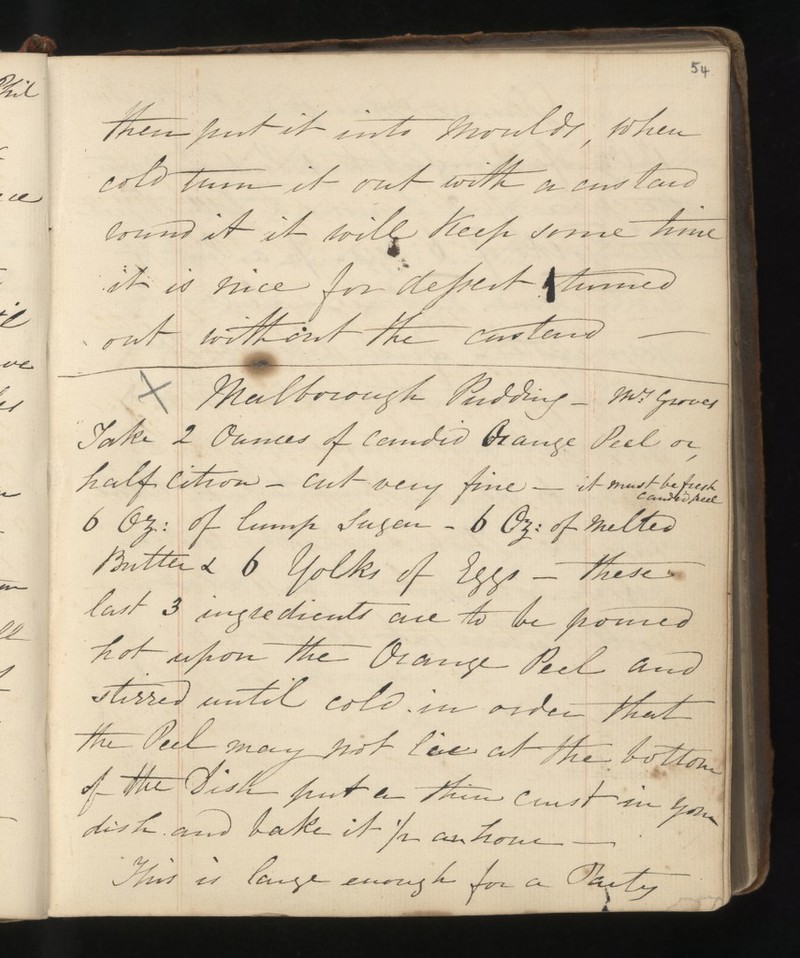 54
then put it into Moulds, when
cold turn it out with a custard
round it it will Keep some time
it is nice for dessert turned
out without the custard —
Malborough Pudding – Mrs Groves
Take 2 Ounces of Candid Orange Peel or,
half citron – cut very fine – it must be fresh
candid peel
6 Oz: of lump Sugar – 6 Oz: of Melted
Butter & 6 Yolks of Eggs – these
last 3 ingredients are to be poured
hot upon the Orange Peel and
stirred until cold in order that
the Peel may not lie at the bottom
of the Dish put a thin crust in your
dish and bake it 1/2 an hour —
This is large enough for a Party